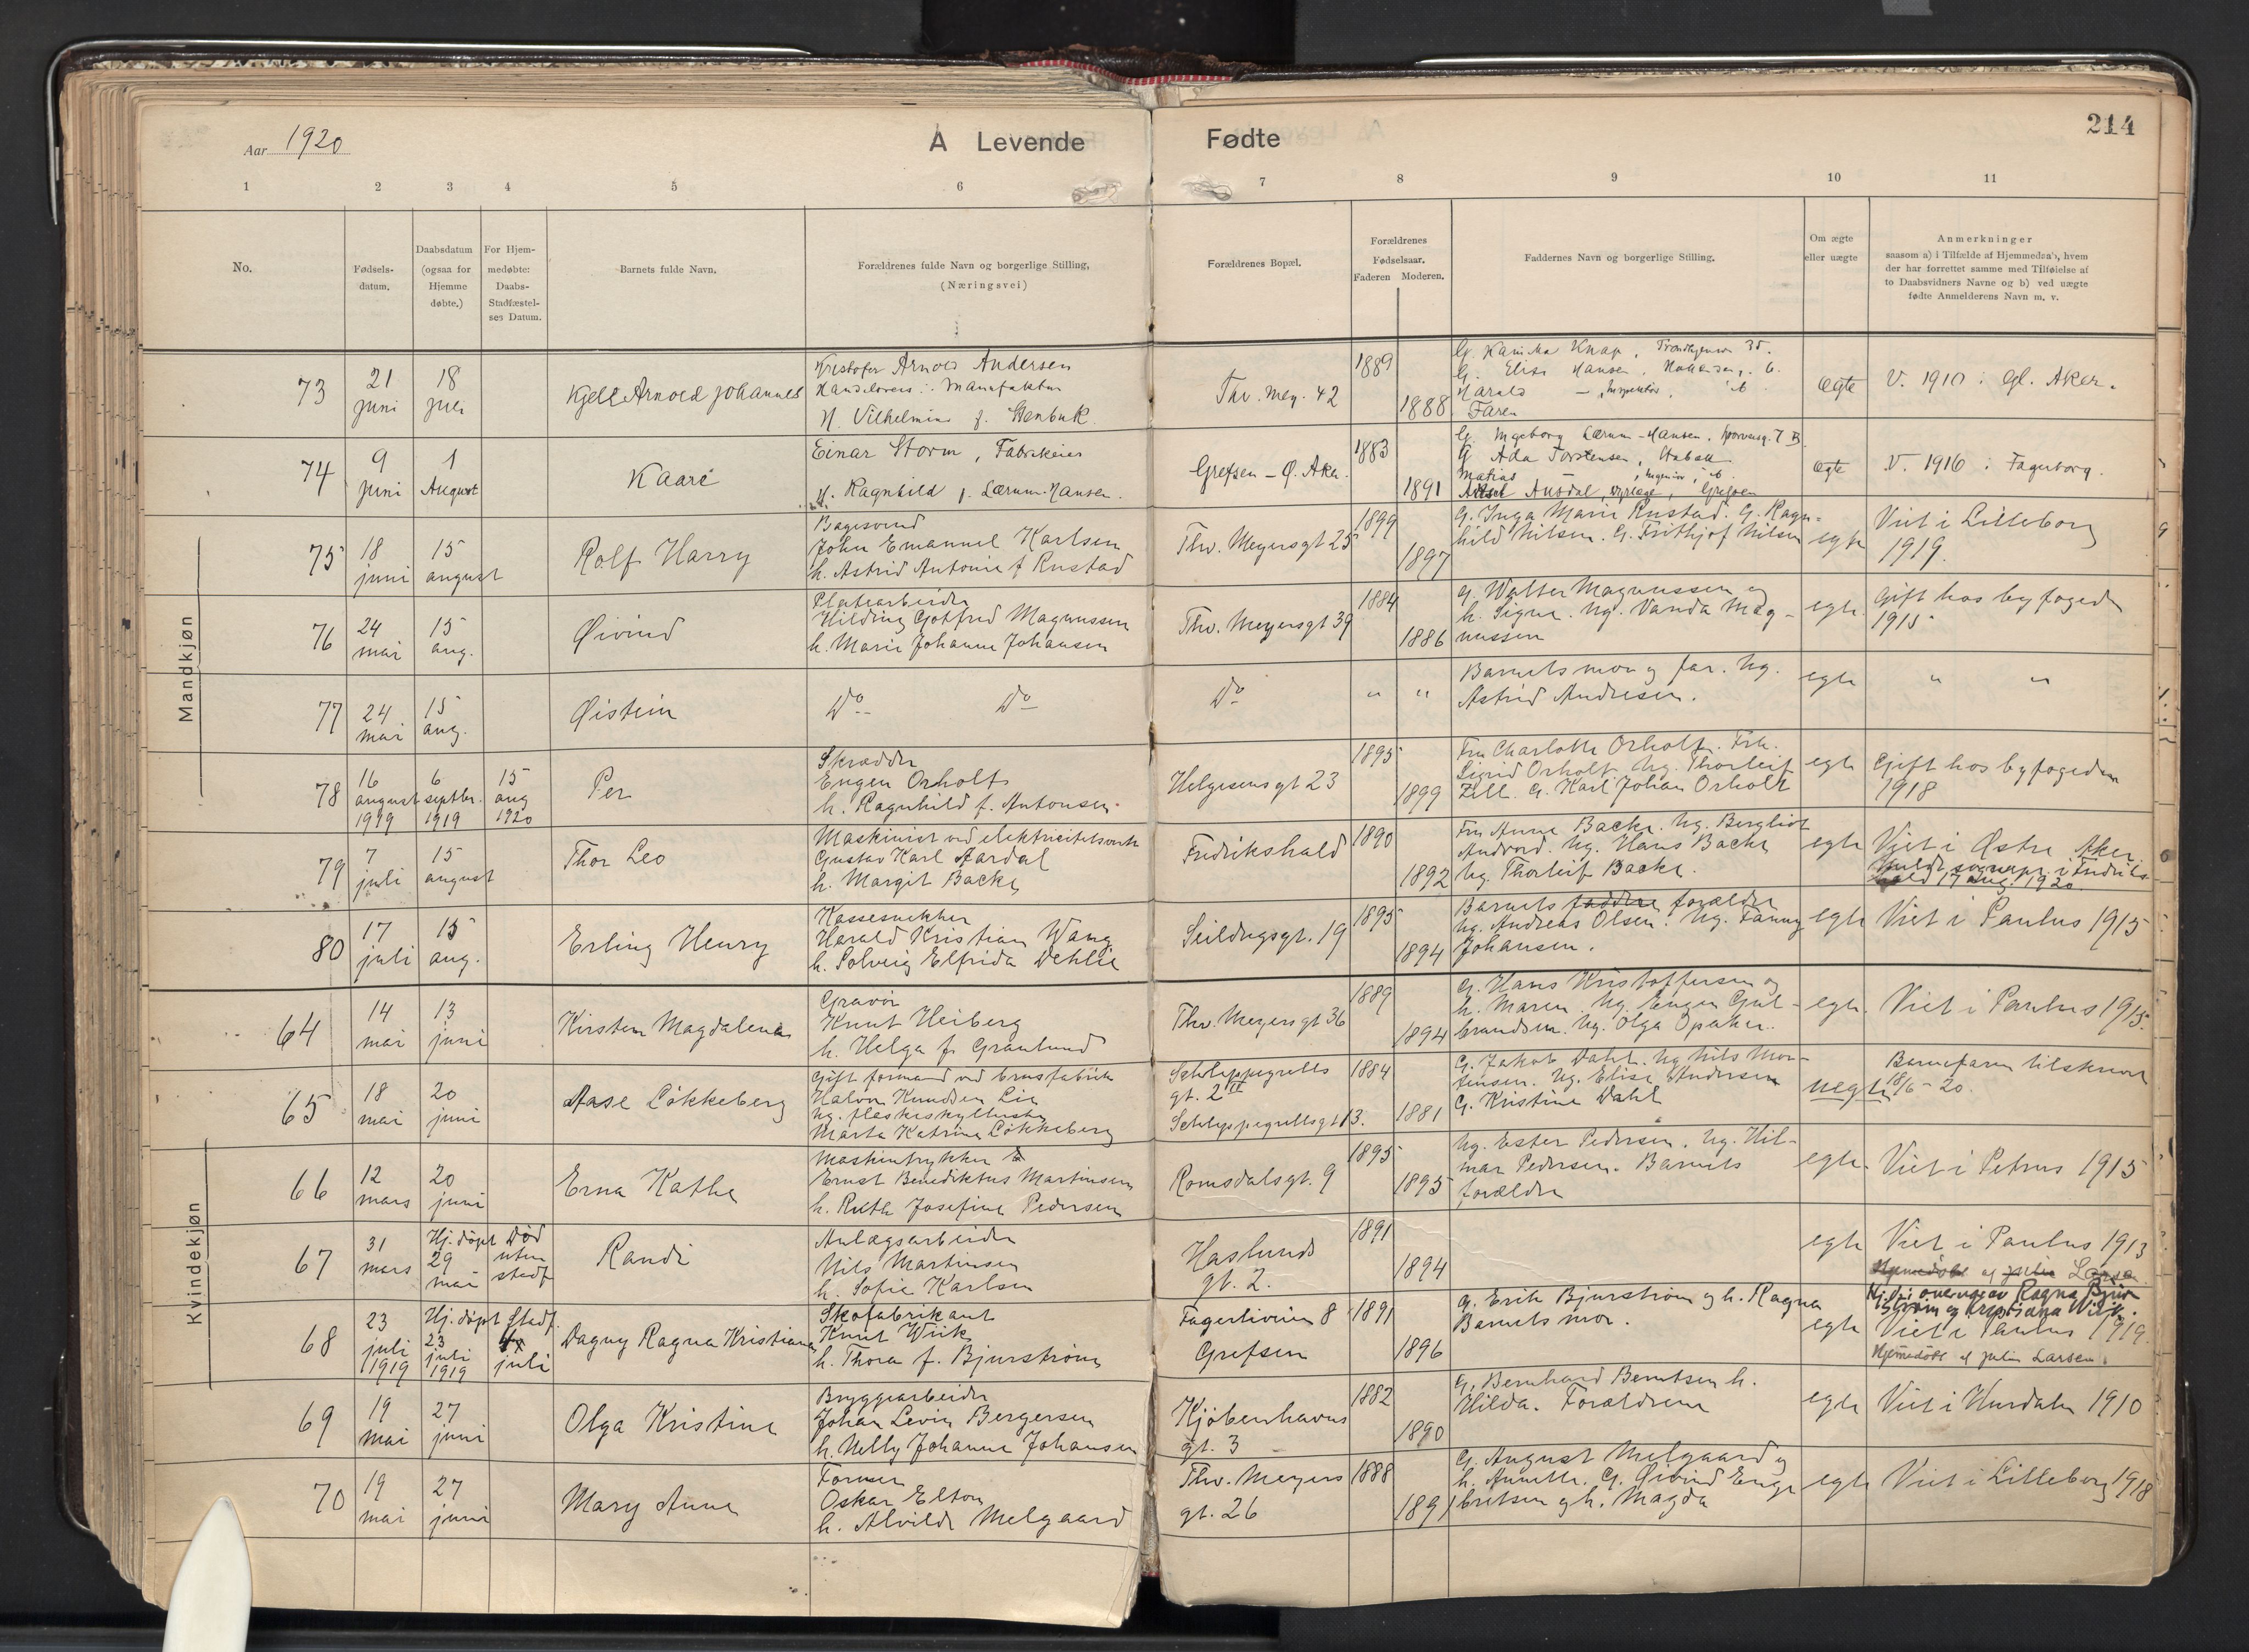 Aar 1920
A Levende Fødte
214
1 2 3 4 5 6 7 8 9 10 11
No.
Fødsels-
datum.
Daabsdatum
(ogsaa for
Hjemme
døbte.)
For Hjem-
medøbte:
Daabs-
Stadfæstel-
ses Datum.
Barnets fulde Navn.
Forældrenes fulde Navn og borgerlige Stilling,
(Næringsvei)
Forældrenes Bopæl.
Forældrenes
Fødselsaar.
Faderen Moderen.
Faddernes Navn og borgerlige Stilling.
Om ægte
eller uægte
Anmerkninger
saasom a) i Tilfælde af Hjemmedaab, hvem
der har forrettet samme med Tilføielse af
to Daabsvidners Navne og b) ved uægte
fødte Anmelderens Navn m. v.
Mandkjøn
73
21
juni
18
juli
Kjell Arnold Johannes
Kristofer Arnold Andersen
H. Vilhelmine f. Stenbuk
Thv. Mey. 42
1889
1888
Elise Hansen
Harald
Faren
ægte
V. 1910 i Gl. Aker.
74
9
juni
1
August
Kaare
Einar Storm, Fabrikeier
H. Ragnhild f. Lærum-Hansen.
Grefsen - Ø. Aker.
1883
1891
G. Ingeborg Lærum-Hansen.
G. Ada Torstensen, Stabæk
Matias
Aksel Ausdal, Grefsen
ægte
V. 1916 i Fagerborg.
75
18
juni
15
august
Rolf Harry
Bagersvend
John Emanuel Karlsen
h. Astrid Antonie f Rustad
Thv. Meyersgt 25
1899
1897
G. Inga Marie Rustad. G. Ragn-
hild Nilsen. G. Frithjof Nilsen
egte
Viet i Lilleborg
1919.
76
24
mai
15
aug.
Øivind
Platearbeider
Hilding Gotfred Magnussen
h. Marie Johanne Johansen
Thv. Meyersgt 39
1884
1886
G. Walter Magnussen og
h. Signe. Ug. Vanda Mag-
nussen
egte.
Gift hos byfogden
1915
77
24
mai
15
aug.
Øistein
Do Do
Do
" "
Barnets mor og far. Ug.
Astrid Andresen.
egte
" "
78
16
august
1919
6
septbr.
1919
15
aug
1920
Per
Skrædder
Eugen Orholt
h. Ragnhild f. Antonsen
Helgesensgt 23
1895
1899
Fru Charlotte Orholt. Frk.
Sigrid Orholt. Ug. Thorleif
Zell. G. Karl Johan Orholt
egte
Gift hos byfogden
1918
79
7
juli
15
august
Thor Leo
Maskinist ved elektricitetsverk
Gustav Karl Aardal
h. Margit Backe
Fredrikshald
1890
1892
Fru Anne Backe. Ug. Bergliot
Andvord. Ug. Hans Backe
Ug. Thorleif Backe.
egte
Viet i Østre Aker
Meldt sognepr. i Fredriks
hald 17 aug. 1920
80
17
juli
15
aug.
Erling Henry
Kassesnekker
Harald Kristian Wang
h. Solveig Elfrida Dehlie
Seildugsgt. 19
1895
1894
Barnets faddere forældre
Ug. Andreas Olsen. Ug. Fanny
Johansen.
egte
Viet i Paulus 1915
Kvindekjøn
64
14
mai
13
juni
Kirsten Magdalena
Gravør
Knut Heiberg
h. Helga f. Granlund
Thv. Meyersgt 36
1889
1894
G. Hans Kristoffersen og
h. Maren. Ug. Eugen Gul-
brandsen. Ug. Olga Opaker.
egte.
Viet i Paulus 1915.
65
18
mai
20
juni
Aase Løkkeberg
Gift formand ved brusfabrik
Halvor Knudsen Lie
Ug. flaskeskyllerske
Marta Katrine Løkkeberg
Schleppegrells
gt. 2 II
Schleppegrellsgt 13.
1884
1881
G. Jakob Dahl. Ug Nils Mor-
tensen. Ug. Elise Andersen
G. Kristine Dahl
uegte
Barnefaren tilskrevet
18/6-20.
66
12
mars
20
juni
Erna Kathe
Maskintrykker
Ernst Benediktus Martinsen
h. Ruth Josefine Pedersen
Romsdalsgt. 9
1895
1895
Ug. Ester Pedersen. Ug. Hil-
mar Pedersen. Barnets
forældre
egte.
Viet i Petrus 1915
67
31
mars
Hj. døpt
29
mai
Død
uten
stadf
Randi
Anlægsarbeider
Nils Martinsen
h. Sofie Karlsen
Haslunds
gt. 2.
1891
1894
egte
Viet i Paulus 1913
Hjemedøbt af Julie Larsen
68
23
juli
1919
Hj. døpt
23
juli
1919
Stadf.
4
juli
Dagny Ragna Kristiane
Skofabrikant
Knut Wiik
h. Thora f. Bjurstrøm
Fagerliveien 8
Grefsen
1891
1896
G. Erik Bjurstrøm og h. Ragna
Barnets mor.
egte
Hj.d. i overvær av Ragna Bjur
strøm og Kristiana Wiik.
Viet i Paulus 1919.
Hjemedøbt af Julie Larsen.
69
19
mai
27
juni
Olga Kristine
Bryggearbeider
Johan Levin Bergersen
h. Nelly Johanne Johansen
Kjøbenhavns
gt. 3
1882
1890
G. Bernhard Berntsen h.
Hilda. Forældrene
egte
Viet i Hurdalen 1910
70
19
mai
27
juni
Mary Anne
Former
Oskar Elton
h. Alvilde Melgaard
Thv. Meyers
gt. 26
1888
1891
G. August Melgaard og
h. Annette. G. Øivind Enge
bretsen og h. Magda
egte
Viet i Lilleborg 1918